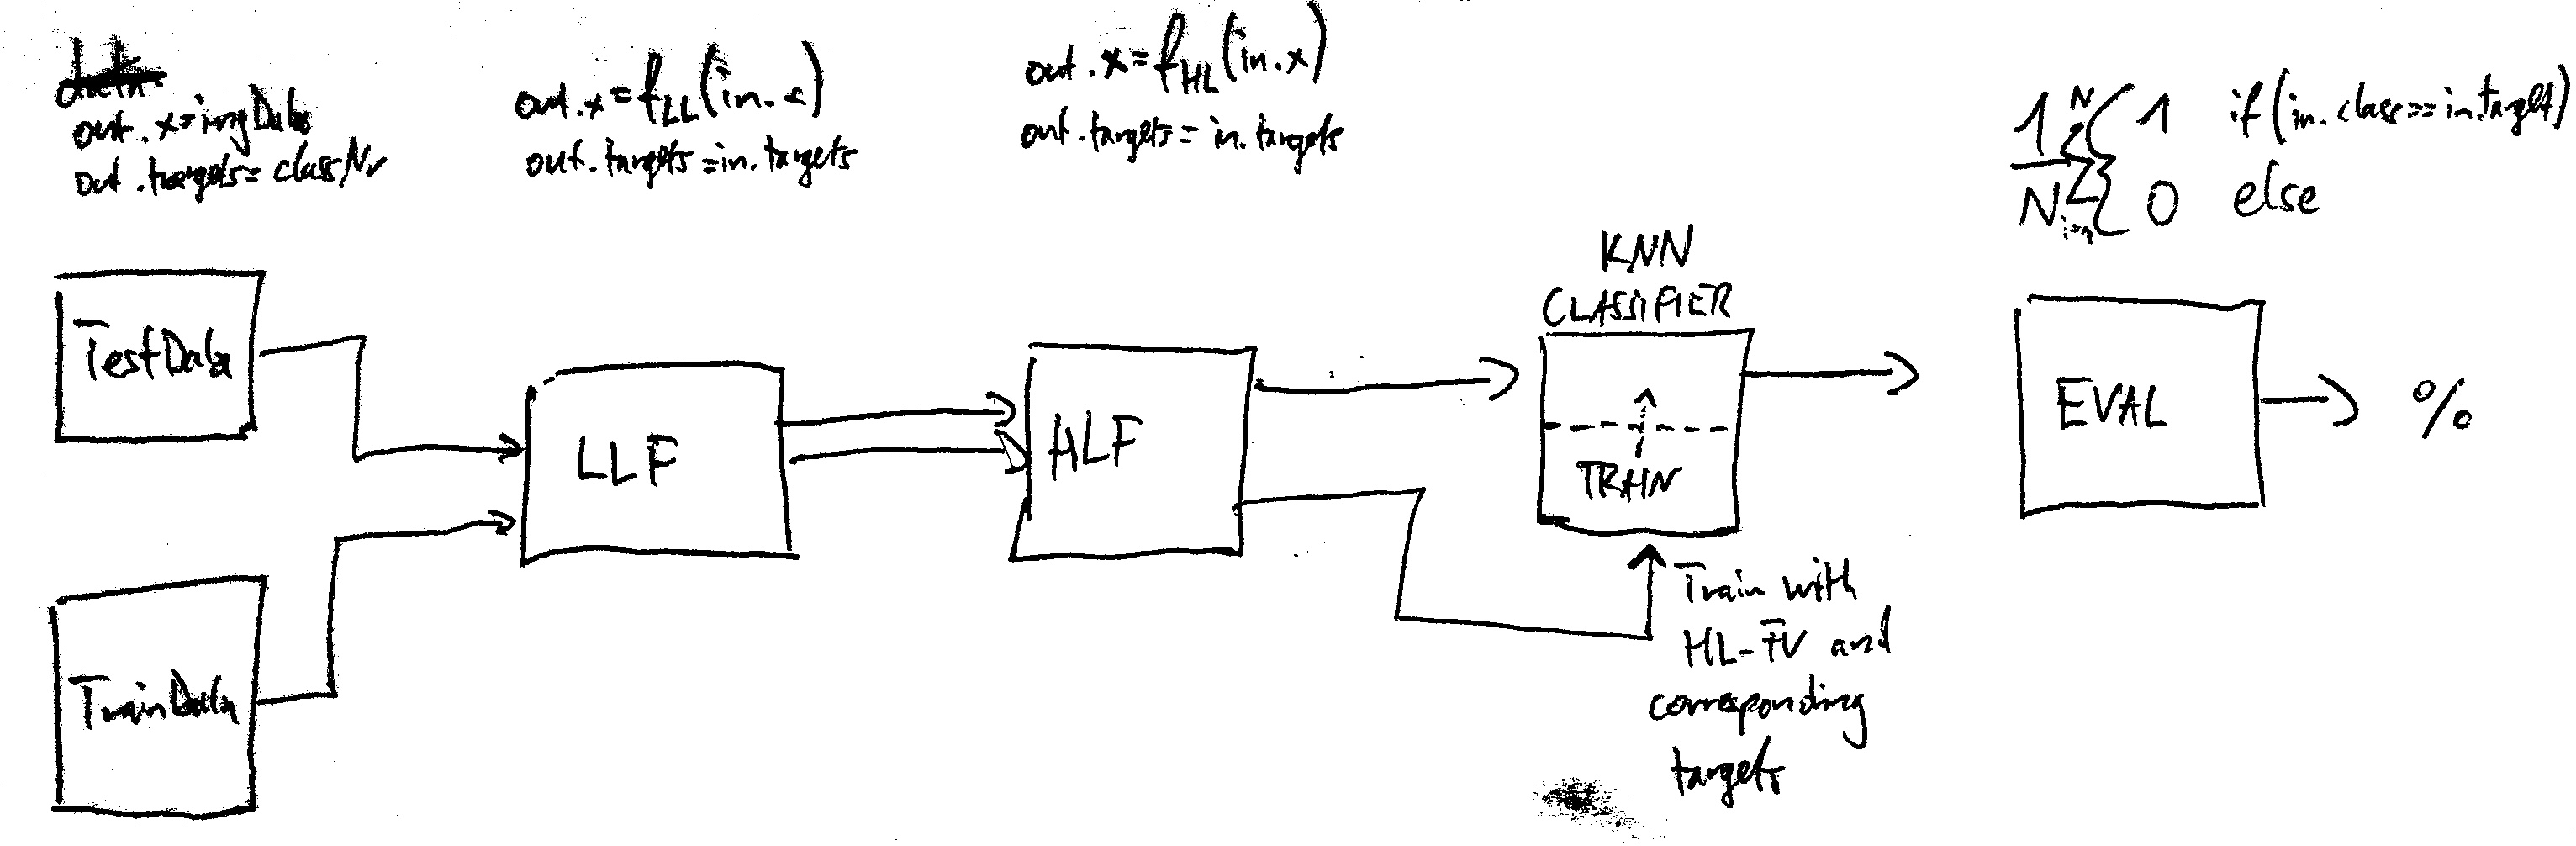 data
out.x=imgData
out.targets=classNr
out.x=f_LL(in.x)
out.targets=in.targets
out.x=f_HL(in.x)
out.targets=in.targets
1/N N Σ i=1 { 1 if(in.class==in.target)
0 else
KNN
CLASSIFIER
TestData
LLF
HLF
TRAIN
EVAL
%
TrainData
Train with
HL-FV and
corresponding
targets